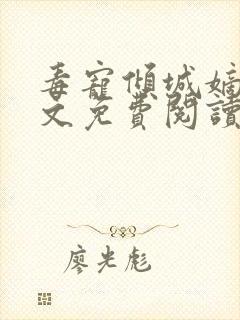 毒寵傾城嫡
文免費閱讀
廖光彪